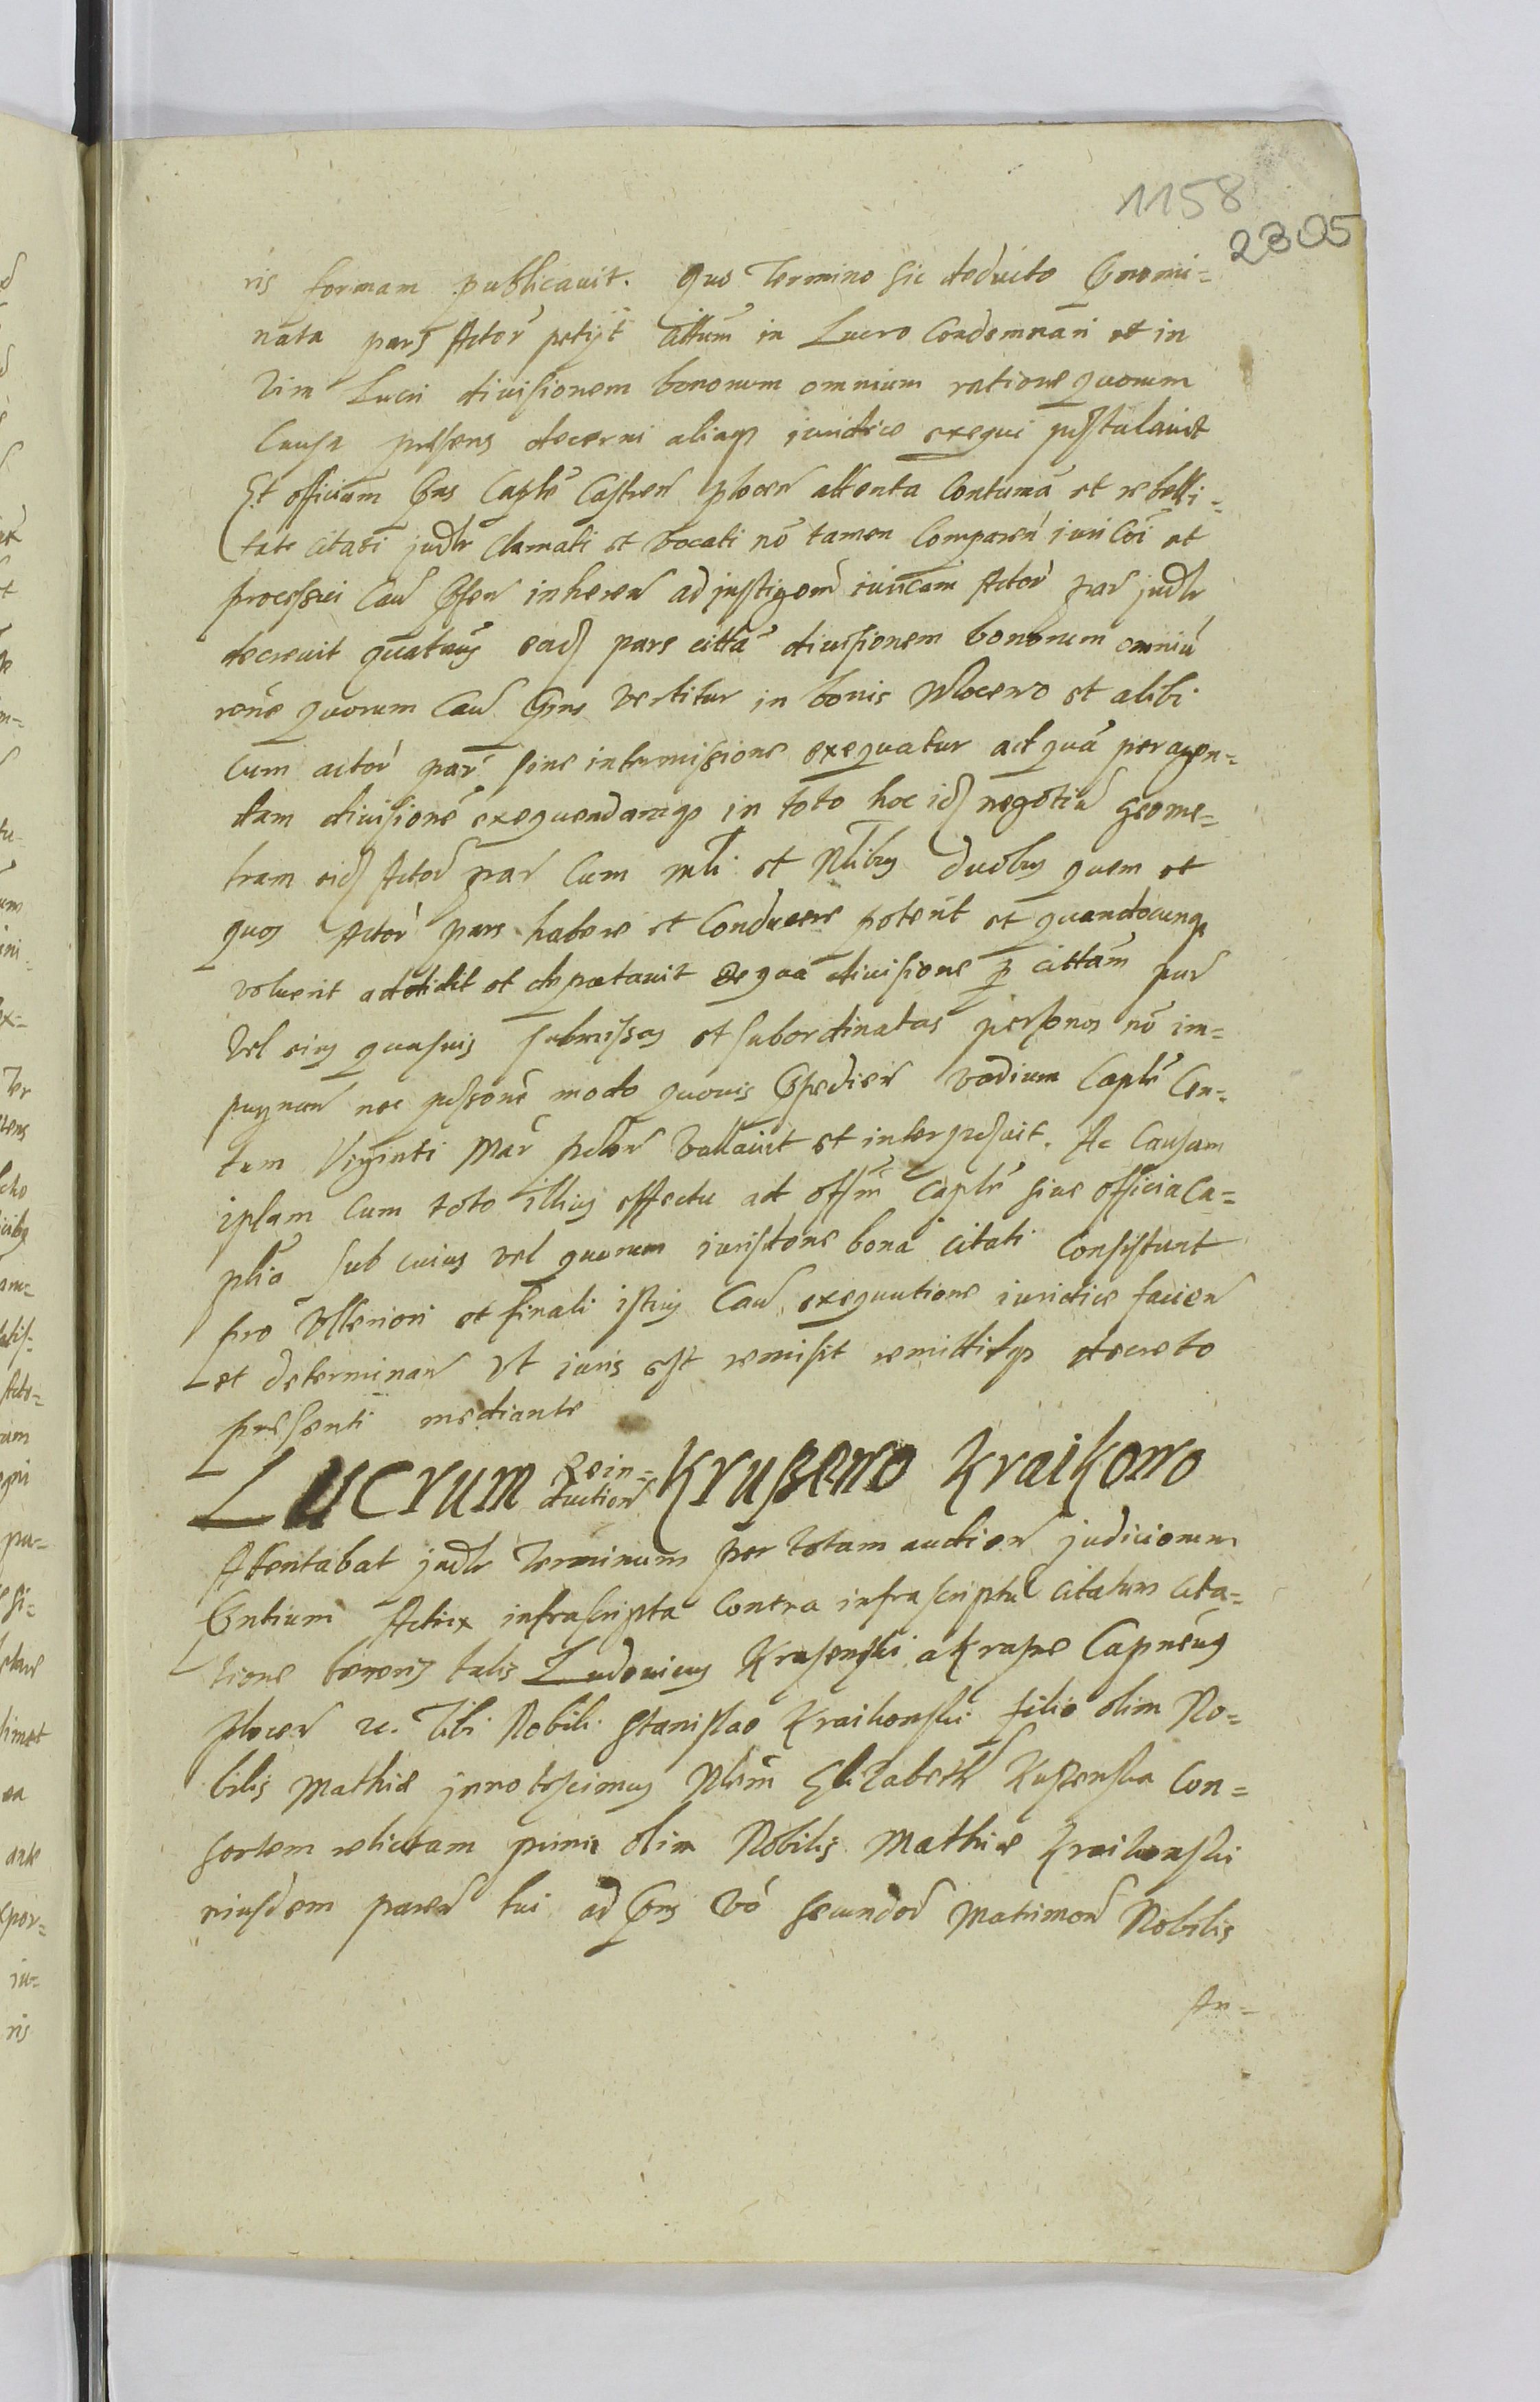 1158
2305
ris formam publicavit. Quo Termino sic deducto Pnomi=
nata pars Actor petijt Cittum in Lucro Condemnari et in
Vim Lucri divisionem bonorum omnium ratione quorum
Causa presens decerni aliaqz iuridice exequi postulavit
Et officium Pns Caple Castren plocen attenta Contuma et rebelli=
tate citati judlr clamati et vocati no tamen Comparen iuri Coi et
processui Cau Psen inheren ad instigem iuricam Actor par judlr
decrevit quatenus ead pars citta divisionem bonorum omniu
rone quorum Cau Pns vertitur in bonis Wlocewo et alibi
cum actor par sine intermissione exequatur ad qua peragen=
dam divisione exequendamqz in toto hoc id negotiu geome=
tram eid Actor par Cum mli et Nlibus duobus quem et
quos Actor pars habere et Conducere poterit et quandocunqz
voluerit addidit et deputavit De qua divisione p cittam par
Vel eius quasvis submissas et subordinatas personas no im=
pugnan nec personè modo quovis Pspedien vadium Caple Cen=
tum Viginti Mar pclon vallavit et interposuit. Ac Causam
ipsam Cum toto illius effectu ad offm Caple sive officia Ca=
plia sub cuius vel quorum iurisdone bona citati Consistunt
pro Ulteriori et finali istius Cau exequutione iuridice facien
et determinan Ut iuris est remisit remittitqz decreto
presenti mediante
Lucrum Rein= Kruszewo Kraikowo
duction
Attentabat judlr Terminum per totam audien judiciorum
Pntium Actrix infrascripta Contra infrascriptu citatum cita=
tione tenoris talis Ludovicus Krasenski a Krasne Capneus
plocen rc. Tibi Nobili Stanislao Kraikowski filio olim No=
bilis Mathiæ innotescimus Nlem Elizabeth Kuszenska Con=
sortem relictam primi olim Nobilis Mathiæ Kraikowski
eiusdem paren tui ad Pns vo secundor matrimon Nobilis
An=